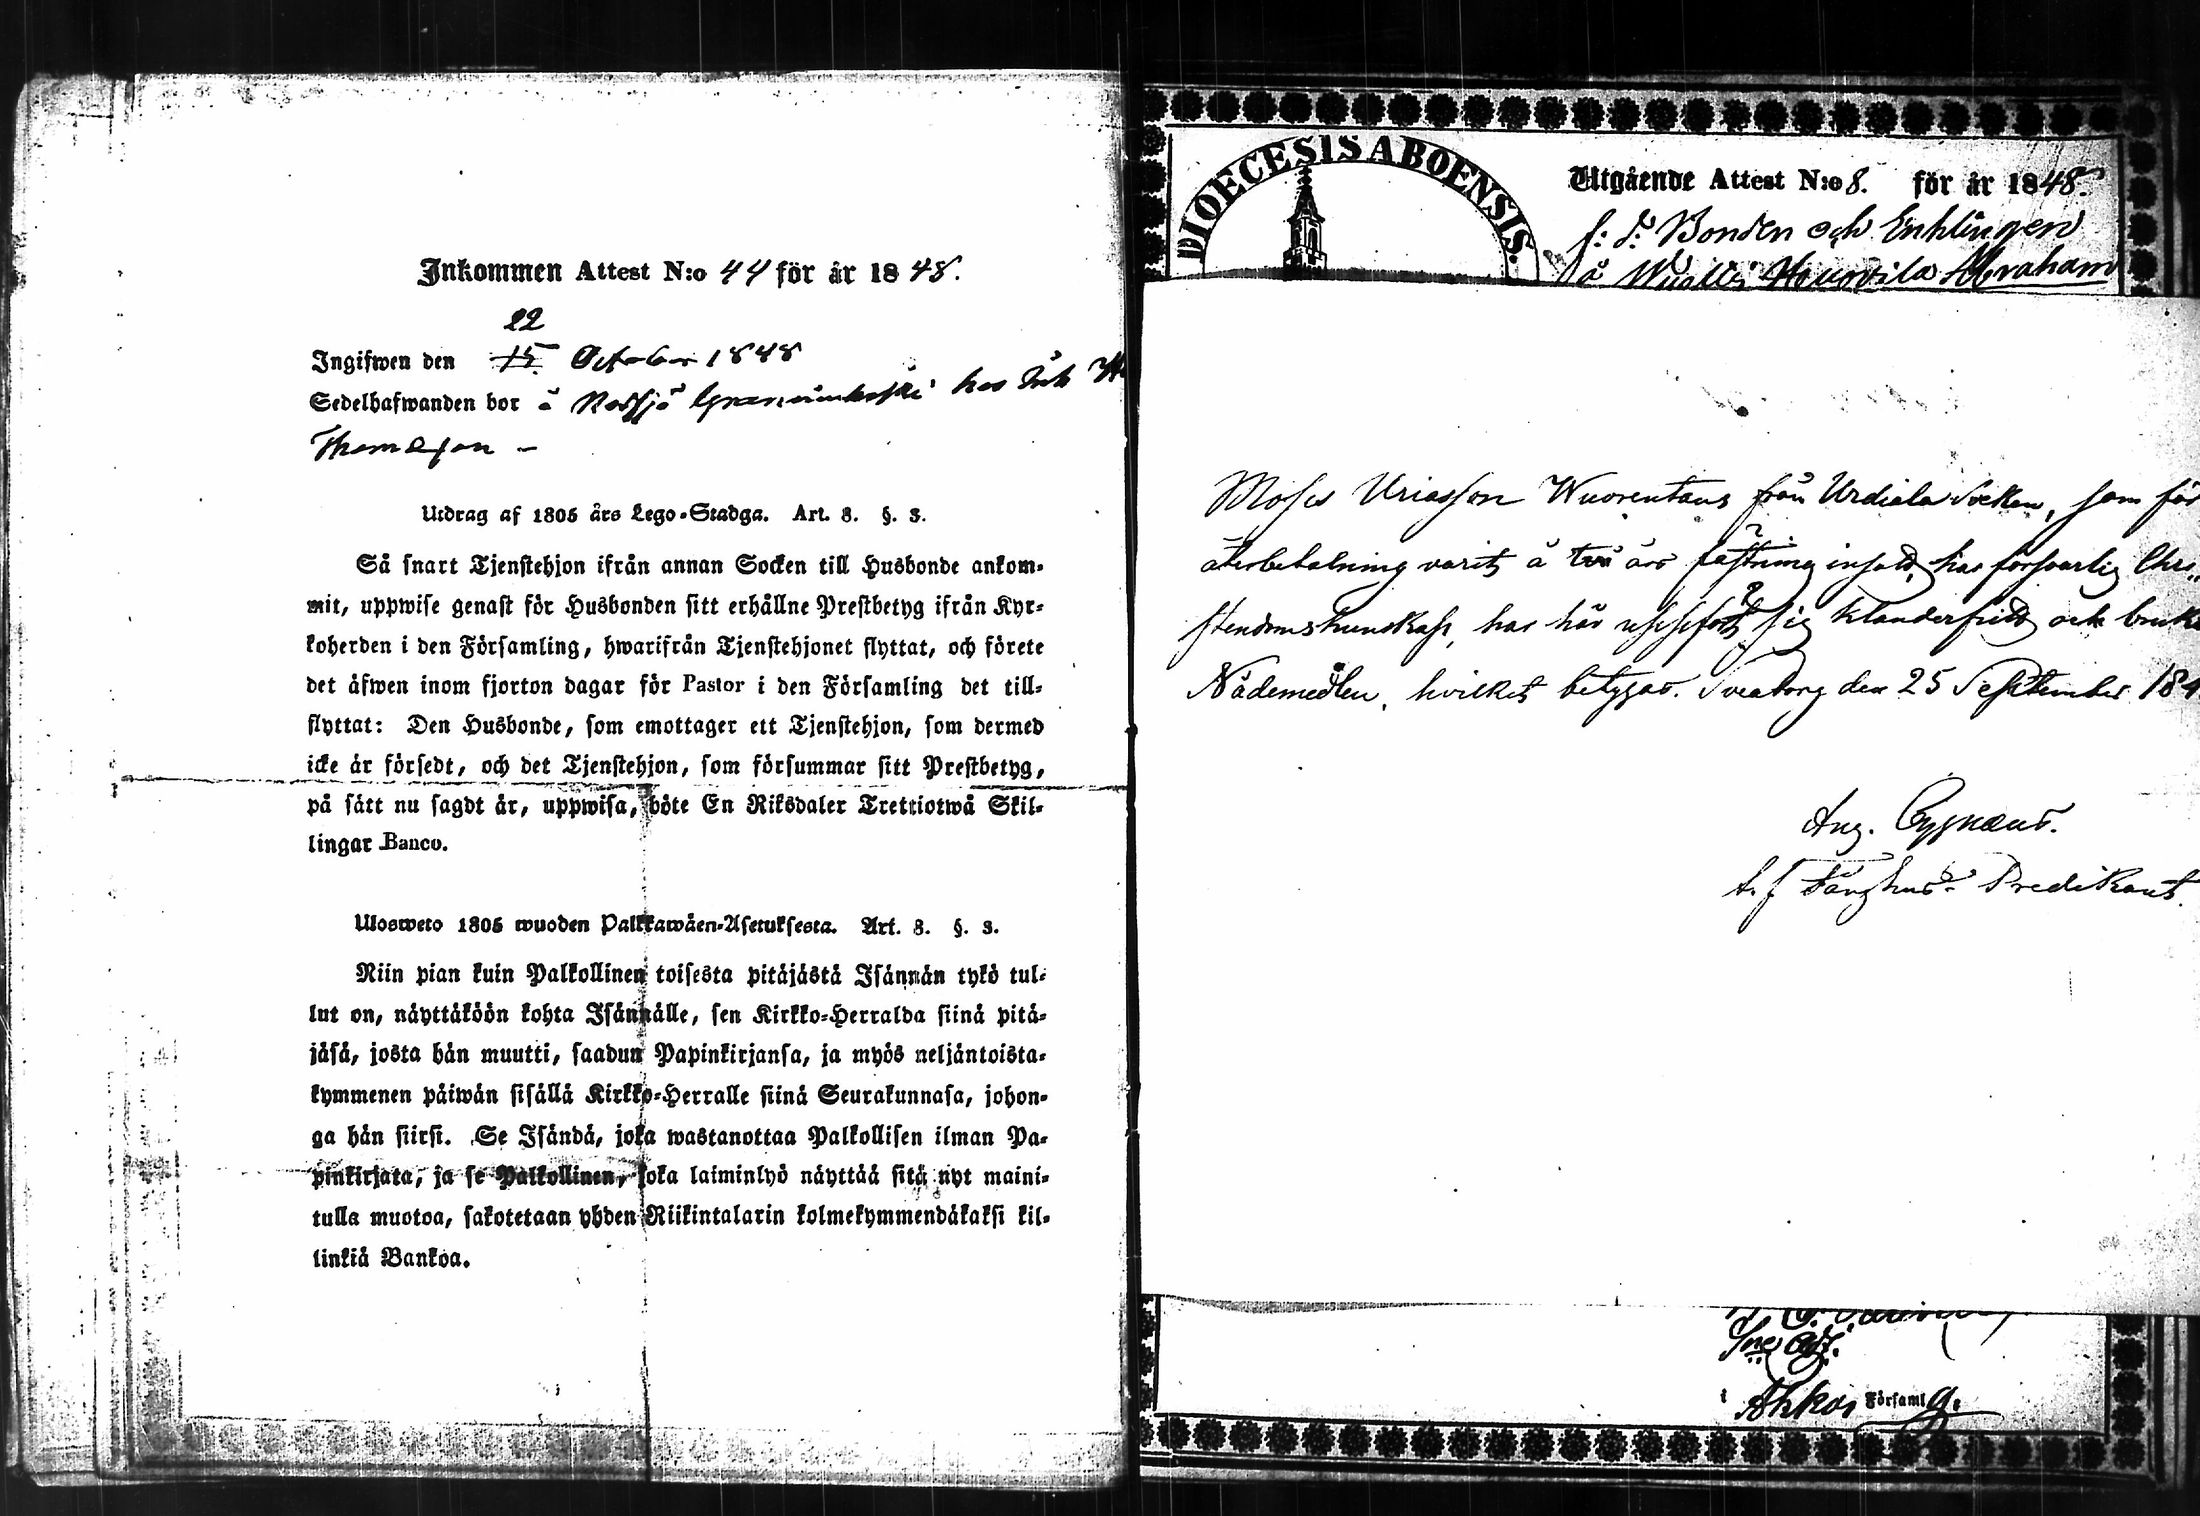 Inkommen Attest N:o 44 för år 1848.
22
Ingifwen den 15 October 1848
Sedelhafwanden bor å hos
Thomasson -
Utdrag af 1805 års Lego-Stadga. Art. 8. §. 3.
Så snart Tjenstehjon ifrån annan Socken till Husbonde ankom-
mit, uppwise genast för Husbonden sitt erhållne Prestbetyg ifrån Kyr-
koherden i den Församling, hwarifrån Tjenstehjonet flyttat, och förete
det äfwen inom fjorton dagar för Pastor i den Församling det till-
flyttat: Den Husbonde, som emottager ett Tjenstehjon, som dermed
icke är försedt, och det Tjenstehjon, som försummar sitt Prestbetyg,
på sätt nu sagdt är, uppwisa, böte En Riksdaler Trettiotwå Skil-
lingar Banco.
Ulosweto 1805 wuoden Palkkawäen-Asetuksesta. Art. 8. §. 3.
Niin pian kuin Palkollinen toisesta pitäjästä Isännän tykö tul-
lut on, näyttäköön kohta Isännälle, sen Kirkko-Herralda siinä pitä-
jäsä, josta hän muutti, saadun Papinkirjansa, ja myös neljäntoista-
kymmenen päiwän sisällä Kirkko-Herralle siinä Seurakunnasa, johon-
ga hän siirsi. Se Isändä, joka wastanottaa Palkollisen ilman Pa-
pinkirjata, ja se Palkollinen, joka laiminlyö näyttää sitä nyt maini-
tulla muotoa, sakotetaan yhden Riikintalarin kolmekymmendäkaksi kil-
linkiä Bankoa.
DIOECESIS ABOENSIS.
Utgående Attest N:o 8. för år 1848.
f: d: Bonden och Enklingen
å Abraham
Moses Uriasson Wuorentaus från Urdiala Socken, som för
återbetalning varit å två års fästning insatt, har försvarlig Chri-
stendomskunskap, har här uppfört sig klanderfritt och bruk
Nådemedlen, hvilket betygas. Sveaborg den 25 September 184
Aug. Cygnæus.
t. f. Fånghus-Predikant.
i Akkas Församlg: